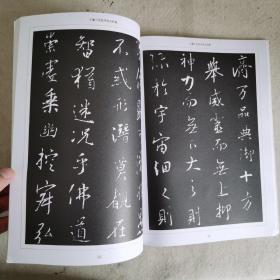 不惑形潛莫覩在
智猶迷況乎佛道
崇虛乘幽控寂弘
濟万品典御十方
舉威靈而無上抑
神力而無下大之則
弥於宇宙細之則